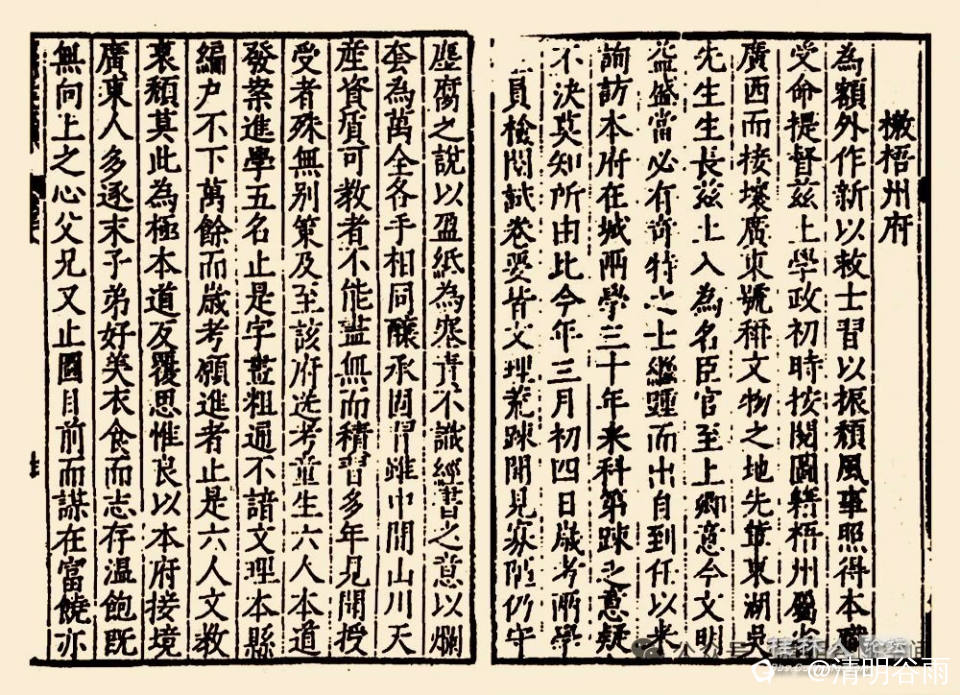 檄梧州府
為額外作新以救士習以振頹風事照得本職
受命提督茲土學政初時按閱圖籍梧州屬
廣西而接壤廣東號稱文物之地先輩東湖吳
先生生長茲土入為名臣官至上卿意今文明
益盛當必有奇特之士繼踵而出自到任以來
詢訪本府在城兩學三十年來科第踈之意疑
不決莫知所由比今年三月初四日歲考兩學
員檢閱試卷要皆文理荒踈聞見寡陋仍守
塵腐之說以盈紙為塞責不識經書之意以爛
套為萬全各手相同釀承固習雖中間山川天
產資質可教者不能盡無而積習多年見聞授
受者殊無別策及至該府送考童生六人本道
發案進學五名止是字畫粗通不諳文理本縣
編户不下萬餘而歲考願進者止是六人文教
衰頹莫此為極本道反覆思惟良以本府接境
廣東人多逐末子弟好美衣食而志存溫飽既
無向上之心父兄又止圖目前而謀在富饒亦
@清明谷雨